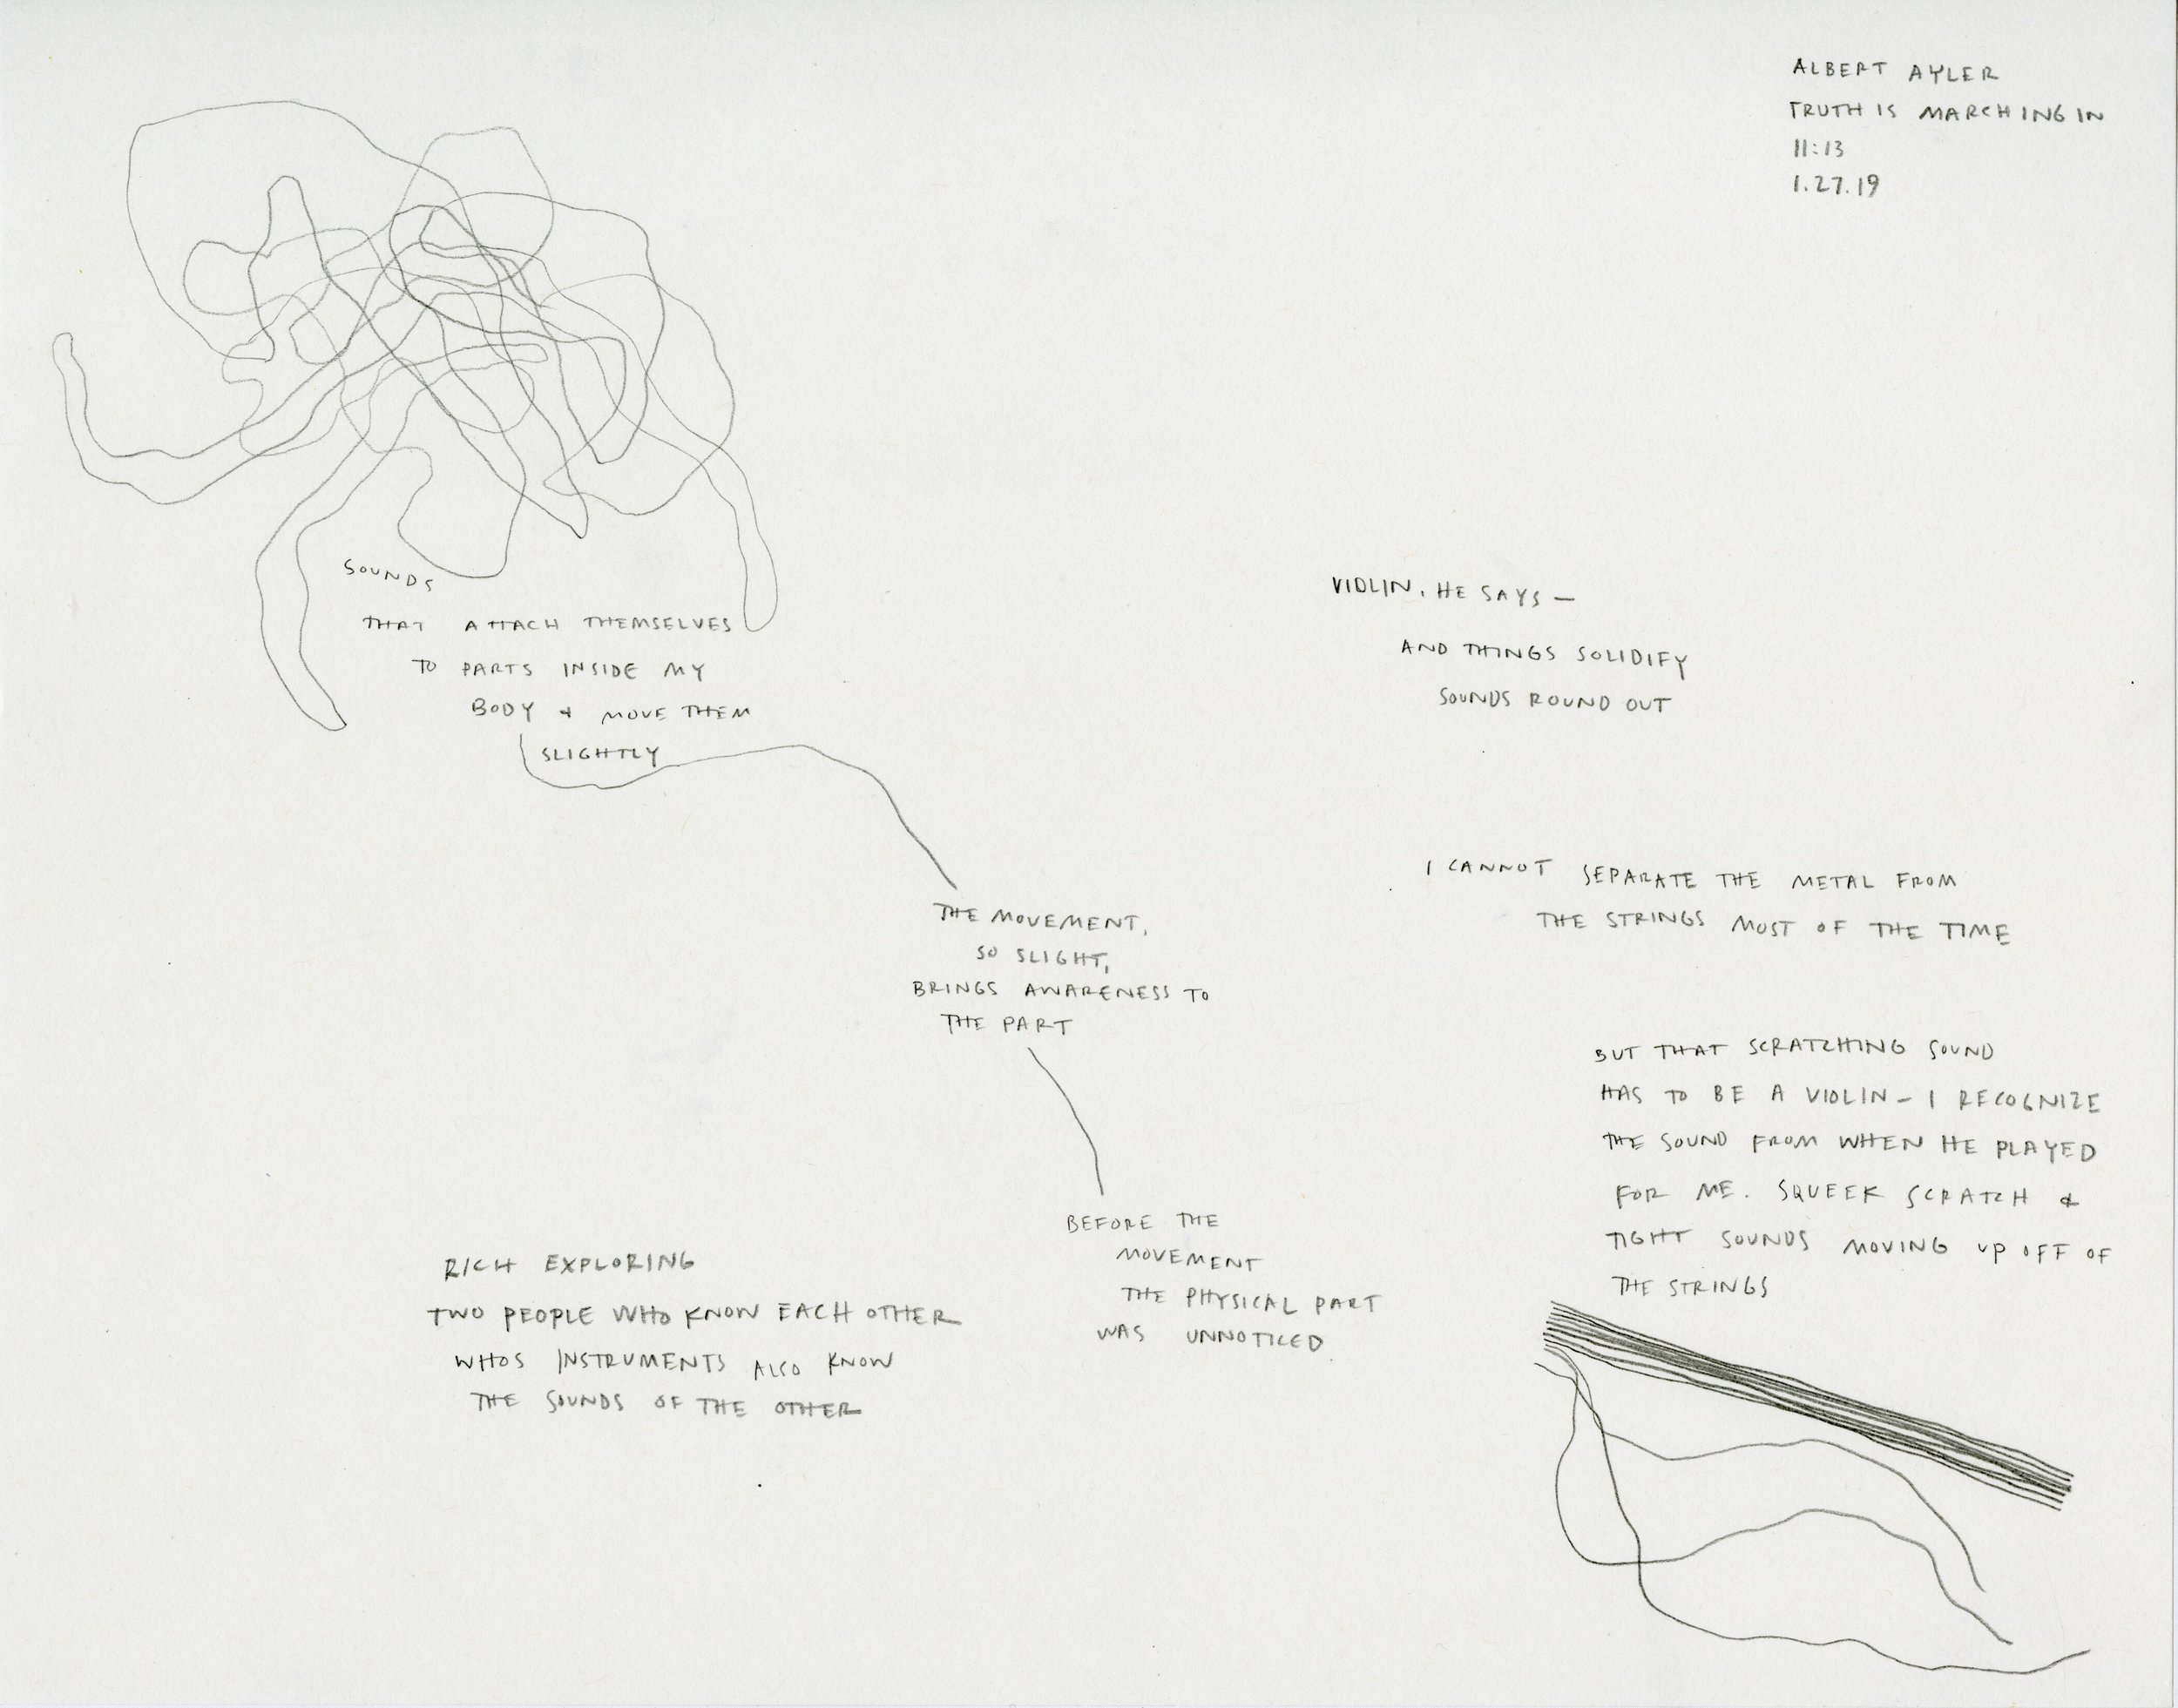 ALBERT AYLER
TRUTH IS MARCHING IN
11:13
1.27.19
SOUNDS
THAT ATTACH THEMSELVES
TO PARTS INSIDE MY
BODY & MOVE THEM
SLIGHTLY
THE MOVEMENT,
SO SLIGHT,
BRINGS AWARENESS TO
THE PART
BEFORE THE
MOVEMENT
THE PHYSICAL PART
WAS UNNOTICED
RICH EXPLORING
TWO PEOPLE WHO KNOW EACH OTHER
WHOS INSTRUMENTS ALSO KNOW
THE SOUNDS OF THE OTHER
VIOLIN, HE SAYS —
AND THINGS SOLIDIFY
SOUNDS ROUND OUT
I CANNOT SEPARATE THE METAL FROM
THE STRINGS MOST OF THE TIME
BUT THAT SCRATCHING SOUND
HAS TO BE A VIOLIN – I RECOGNIZE
THE SOUND FROM WHEN HE PLAYED
FOR ME. SQUEEK SCRATCH &
TIGHT SOUNDS MOVING UP OFF OF
THE STRINGS